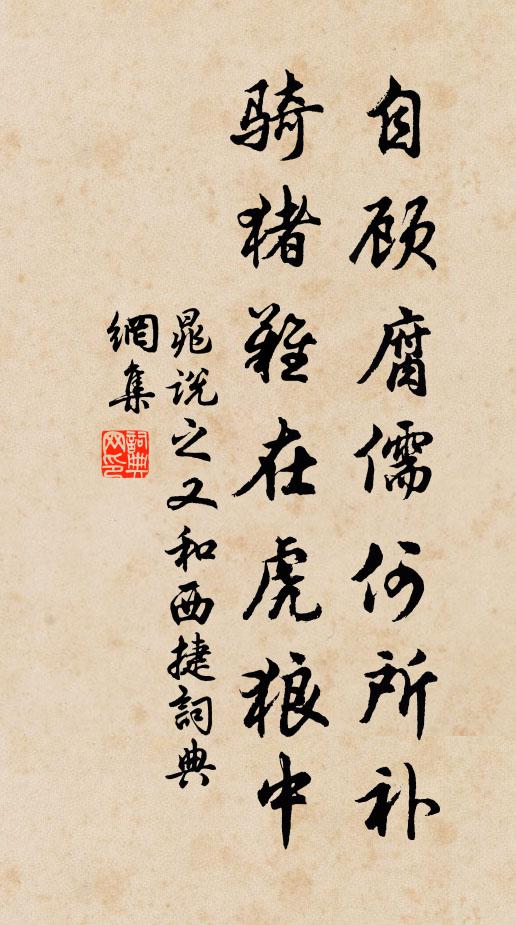 自顾腐儒何所补
骑猪难在虎狼中
晁说之又和西捷詞典
網集
詞典
网印